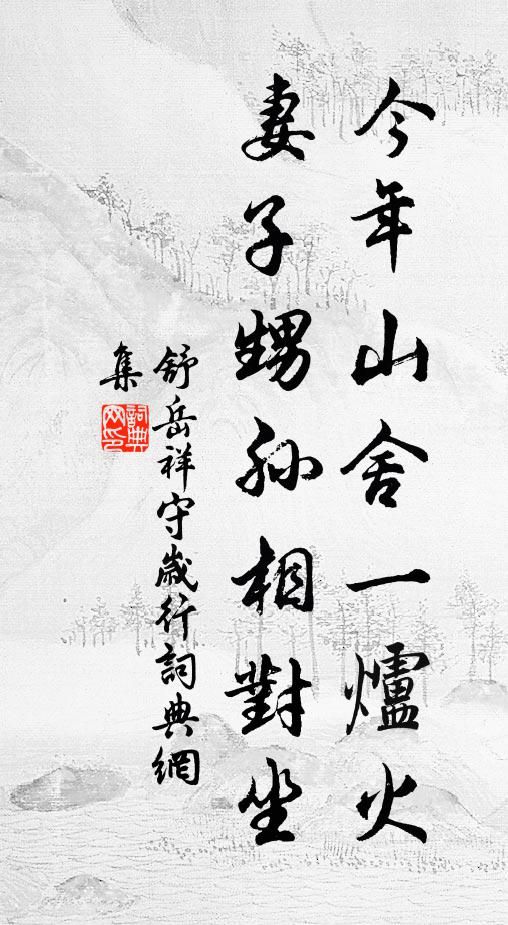 今年山舍一爐火
妻子甥孫相對坐
舒岳祥守歲行詞典網
集
詞典
网印